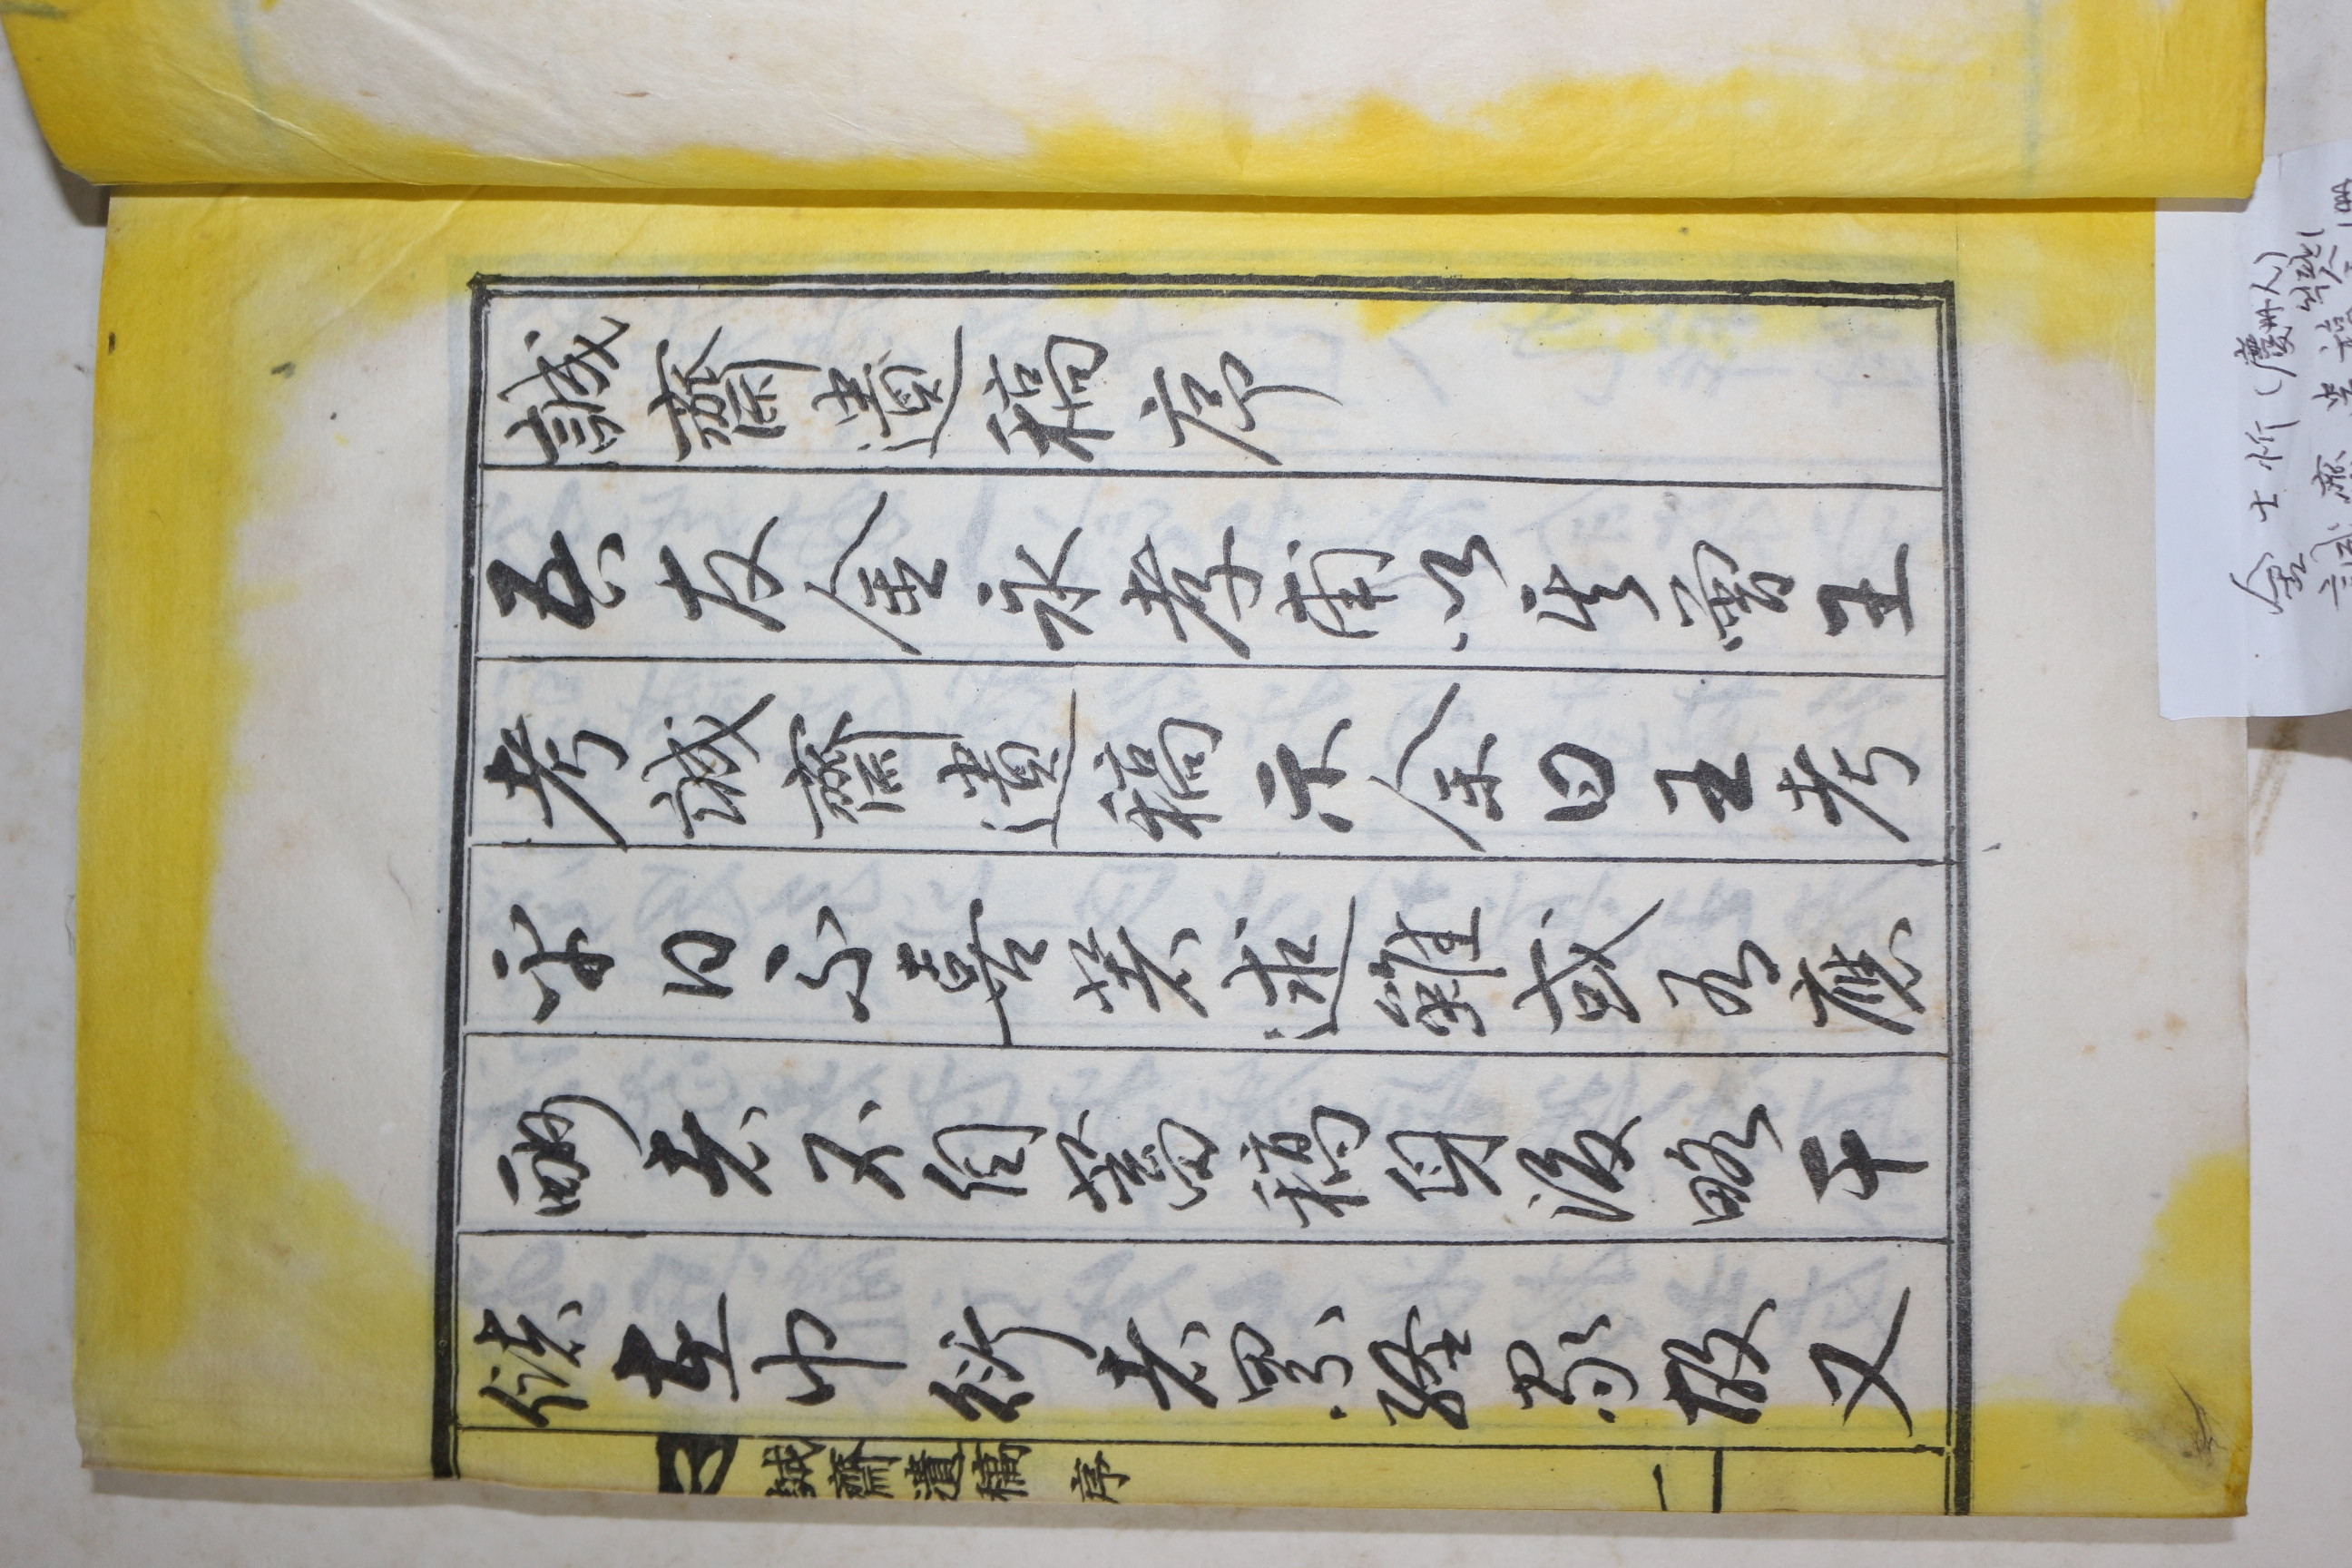 誠齋遺稿序
吾友金永孝甫以其曾王
考誠齋遺稿示余曰王考
平日不喜著述雖或有應
酬者不自蓄稿身後略干
儲在巾衍者累経家故又
誠齋遺稿 序
一
金士忻(慶州人)